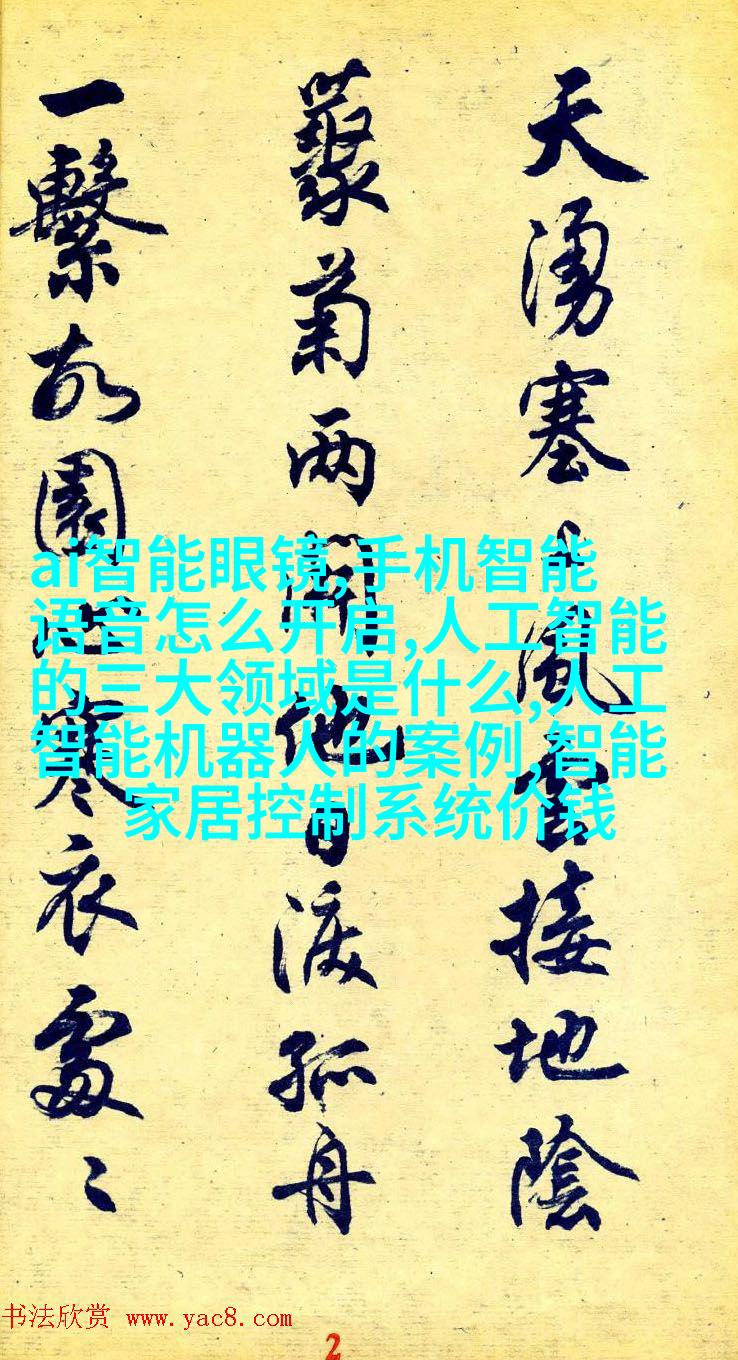 天湧塞上風雲接地陰
藂菊两開他日淚孤舟
一繫故園心寒衣處〻
ai智能眼镜,手机智能
语音怎么开启,人工智能
的三大领域是什么,人工
智能机器人的案例,智能
家居控制系统价钱
书法欣赏 www.yac8.com
2